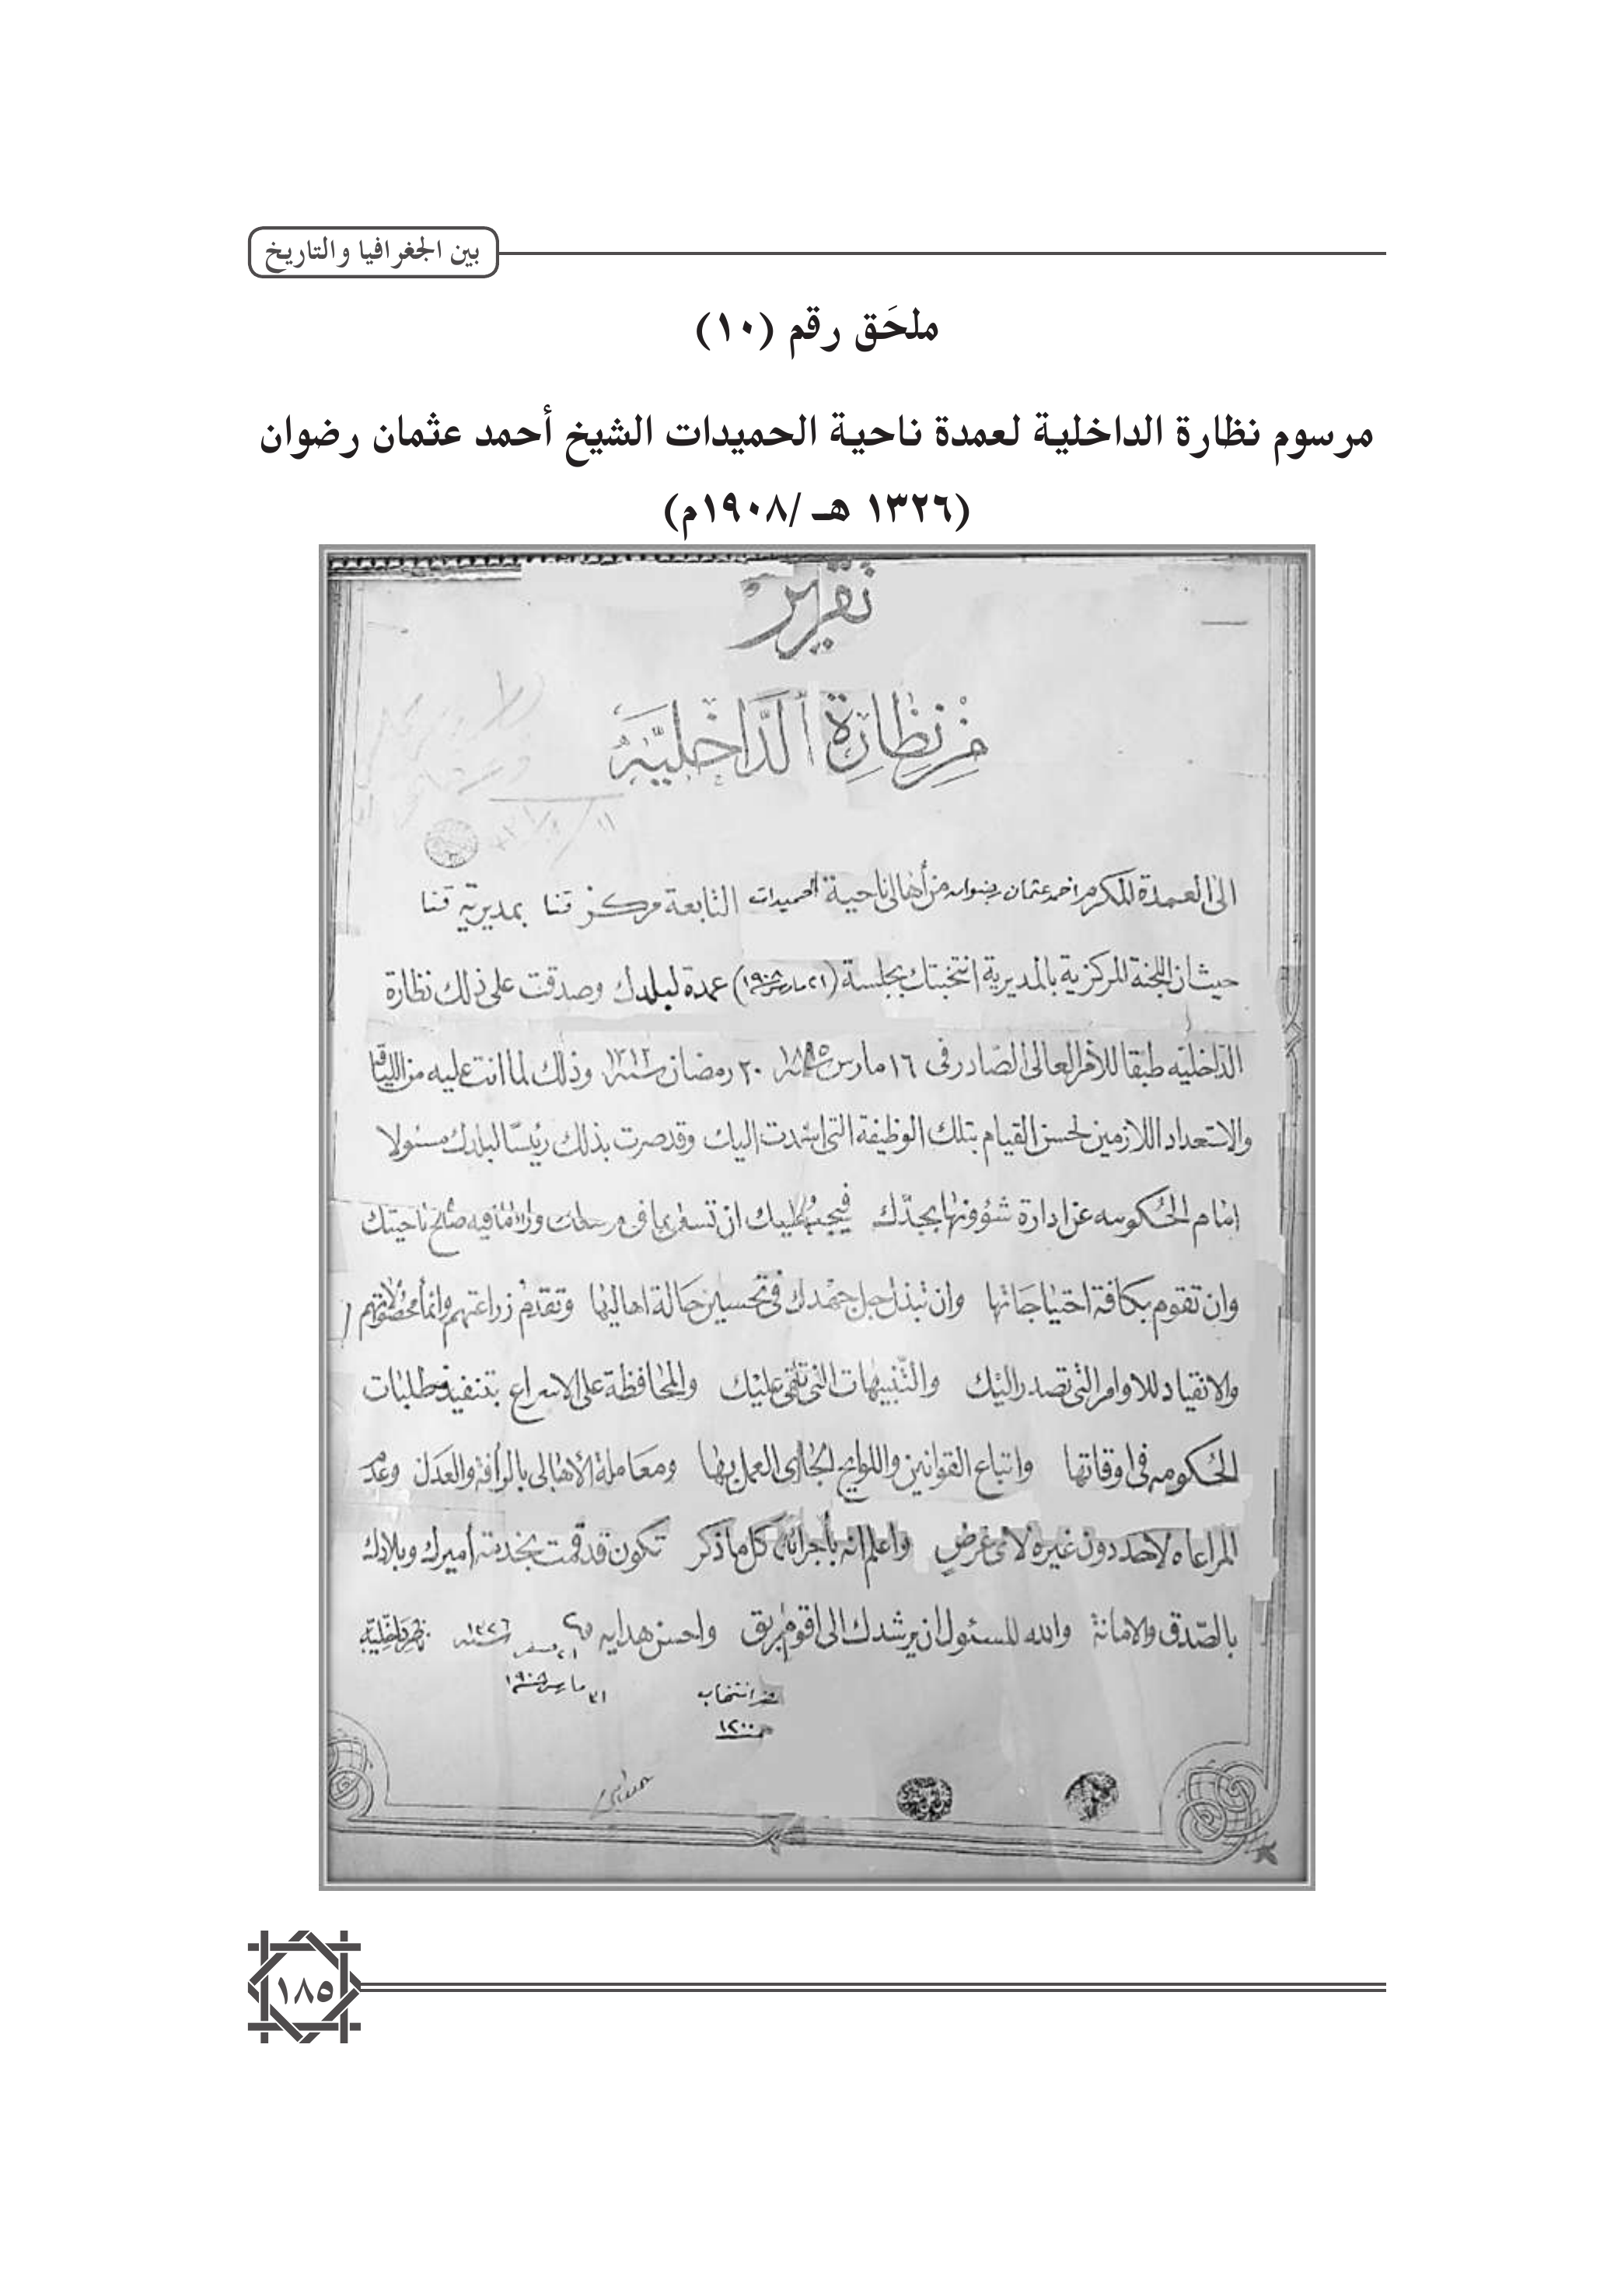 بين الجغرافيا والتاريخ
ملحَق رقم (١٠)
مرسوم نظارة الداخلية لعمدة ناحية الحميدات الشيخ أحمد عثمان رضوان
(١٣٢٦ هـ /١٩٠٨م)
تقرير
من نظارة الداخليّة
الى العمدة المكرم احمد عثمان رضوان من أهالى ناحية الحميدات التابعة مركز قنا بمديرية قنا
حيث ان اللجنة المركزية بالمديرية انتخبتك بجلسة (٢١ مارس سنة ١٩٠٨) عمدة لبلدك وصدقت على ذلك نظارة
الداخليّه طبقا للأمر العالى الصادر فى ١٦ مارس سنة ١٨٩٥ ٢٠ رمضان سنة ١٣١٢ وذلك لما انت عليه من اللياقة
والاستعداد اللازمين لحسن القيام بتلك الوظيفة التى اسندت اليك وقد صرت بذلك رئيسًا لبلدك مسئولا
امام الحكومه عن ادارة شؤونها بجدّك فيجب عليك ان تسعى بما فى وسعك ناحيتك
وان تقوم بكافة احتياجاتها وان تبذل جل جهدك فى تحسين حالة اهاليها وتقدم زراعتهم وانما محصولاتهم
والانقياد للاوامر التى تصدر اليك والتنبيهات التى تلقى عليك والمحافظة على الاسراع بتنفيذ طلبات
الحكومه فى اوقاتها واتباع القوانين واللوايح الجارى العمل بها ومعاملة الاهالى بالرأفة والعدل وعدم
المراعاه لاحد دون غيره لاى غرض واعلم انه بأجرائك كل ما ذكر تكون قد قمت بخدمة أميرك وبلادك
بالصّدق والامانة والله المسئول ان يرشدك الى اقوم طريق واحسن هدايه صفر سنة ١٣٢٦ ناظر داخليّة
مارس سنة ١٩٠٨
انتخاب
١٢٠٠
١٨٥